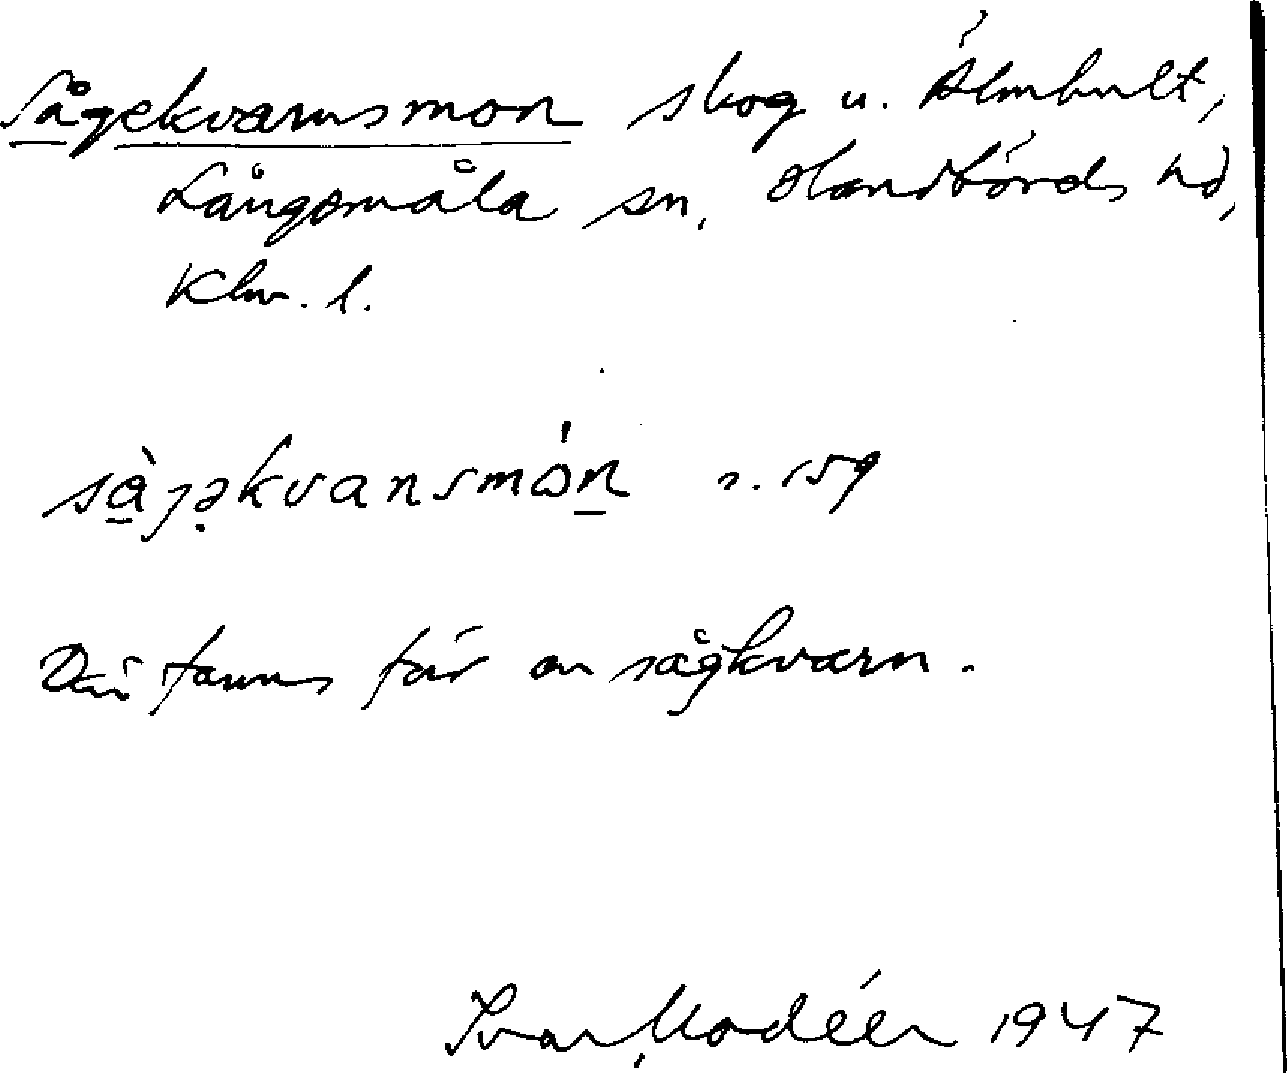 Sågekvarnsmon skog u. Älmhult,
Långemåla sn, Handbörds hd,
Klm. l.
sàjəkvansmón s. 159
Där fanns förr en sågkvarn.
Ivar Modéer 1947